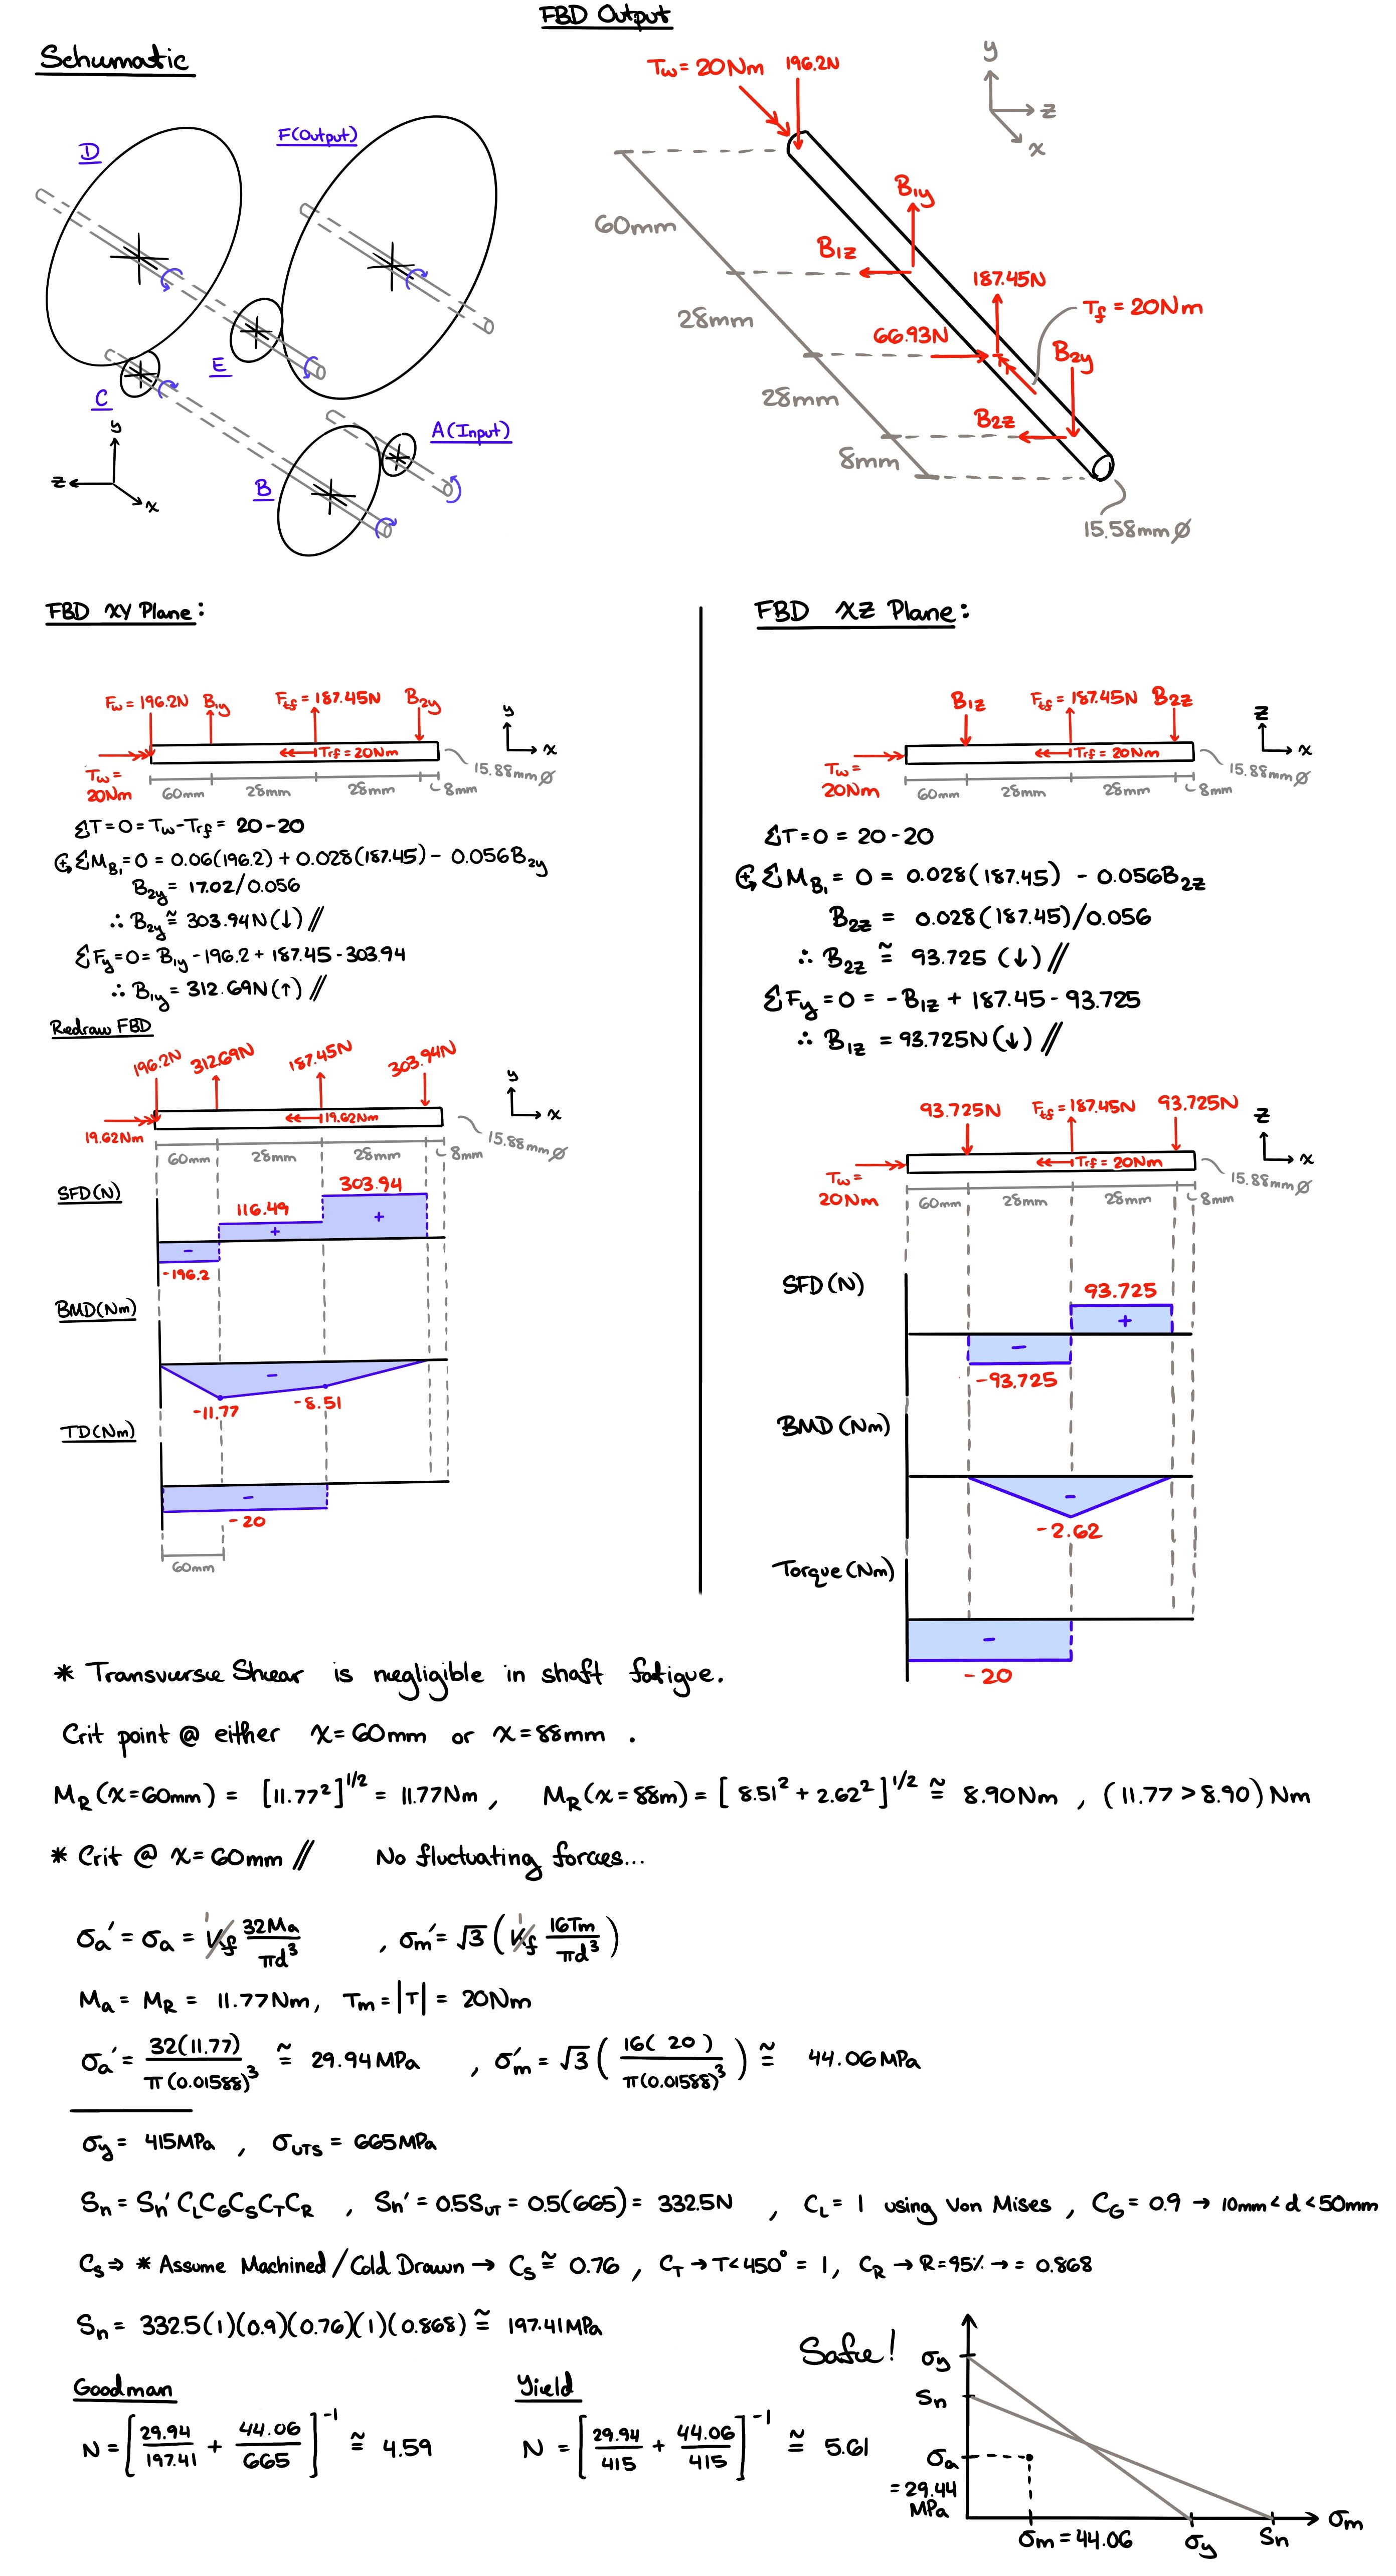 FBD Output
Schematic
Tw = 20Nm 196.2N
y
z
x
D
F(Output)
60mm
B1y
B1z
187.45N
Tf = 20Nm
28mm
66.93N
B2y
E
C
28mm
B2z
A(Input)
y
z
x
B
8mm
15.58mmØ
FBD XY Plane:
Fw = 196.2N B1y Ftf = 187.45N B2y
y
x
Trf = 20Nm
Tw = 20Nm
60mm 28mm 28mm 8mm
15.88mmØ
ΣT = 0 = Tw - Trf = 20 - 20
ΣMB1 = 0 = 0.06(196.2) + 0.028(187.45) - 0.056B2y
B2y = 17.02/0.056
∴ B2y ≅ 303.94N (↓) //
ΣFy = 0 = B1y - 196.2 + 187.45 - 303.94
∴ B1y = 312.69N (↑) //
Redraw FBD
196.2N 312.69N 187.45N 303.94N
y
x
19.62Nm
19.62Nm
60mm 28mm 28mm 8mm
15.88mmØ
SFD(N)
303.94
116.49
+
+
-
-196.2
BMD(Nm)
-
-11.77
-8.51
TD(Nm)
-
-20
60mm
FBD XZ Plane:
B1z Ftf = 187.45N B2z
z
x
Trf = 20Nm
Tw = 20Nm
60mm 28mm 28mm 8mm
15.88mmØ
ΣT = 0 = 20 - 20
ΣMB1 = 0 = 0.028(187.45) - 0.056B2z
B2z = 0.028(187.45)/0.056
∴ B2z ≅ 93.725 (↓) //
ΣFy = 0 = -B1z + 187.45 - 93.725
∴ B1z = 93.725N (↓) //
93.725N Ftf = 187.45N 93.725N
z
x
Trf = 20Nm
Tw = 20Nm
60mm 28mm 28mm 8mm
15.88mmØ
SFD(N)
93.725
+
-
-93.725
BMD(Nm)
-
-2.62
Torque(Nm)
-
-20
* Transverse Shear is negligible in shaft fatigue.
Crit point @ either x = 60mm or x = 88mm .
MR(x=60mm) = [11.77²]^1/2 = 11.77Nm , MR(x=88m) = [8.51² + 2.62²]^1/2 ≅ 8.90Nm , (11.77 > 8.90) Nm
* Crit @ x = 60mm // No fluctuating forces...
σa' = σa = Kf 1 32Ma/πd³ , σm' = √3 (Kf 1 16Tm/πd³)
Ma = MR = 11.77Nm, Tm = |T| = 20Nm
σa' = 32(11.77)/π(0.01588)³ ≅ 29.94MPa , σm' = √3 (16(20)/π(0.01588)³) ≅ 44.06MPa
σy = 415MPa , σUTS = 665MPa
Sn = Sn' CL CG CS CT CR , Sn' = 0.5SUT = 0.5(665) = 332.5N , CL = 1 using Von Mises , CG = 0.9 → 10mm < d < 50mm
Cs ⇒ * Assume Machined/Cold Drawn → Cs ≅ 0.76 , CT → T < 450° = 1, CR → R = 95% → = 0.868
Sn = 332.5(1)(0.9)(0.76)(1)(0.868) ≅ 197.41MPa
Goodman
N = [29.94/197.41 + 44.06/665]^-1 ≅ 4.59
Yield
N = [29.94/415 + 44.06/415]^-1 ≅ 5.61
Safe!
σy
Sn
σa
= 29.44
MPa
σm = 44.06 σy Sn
σm